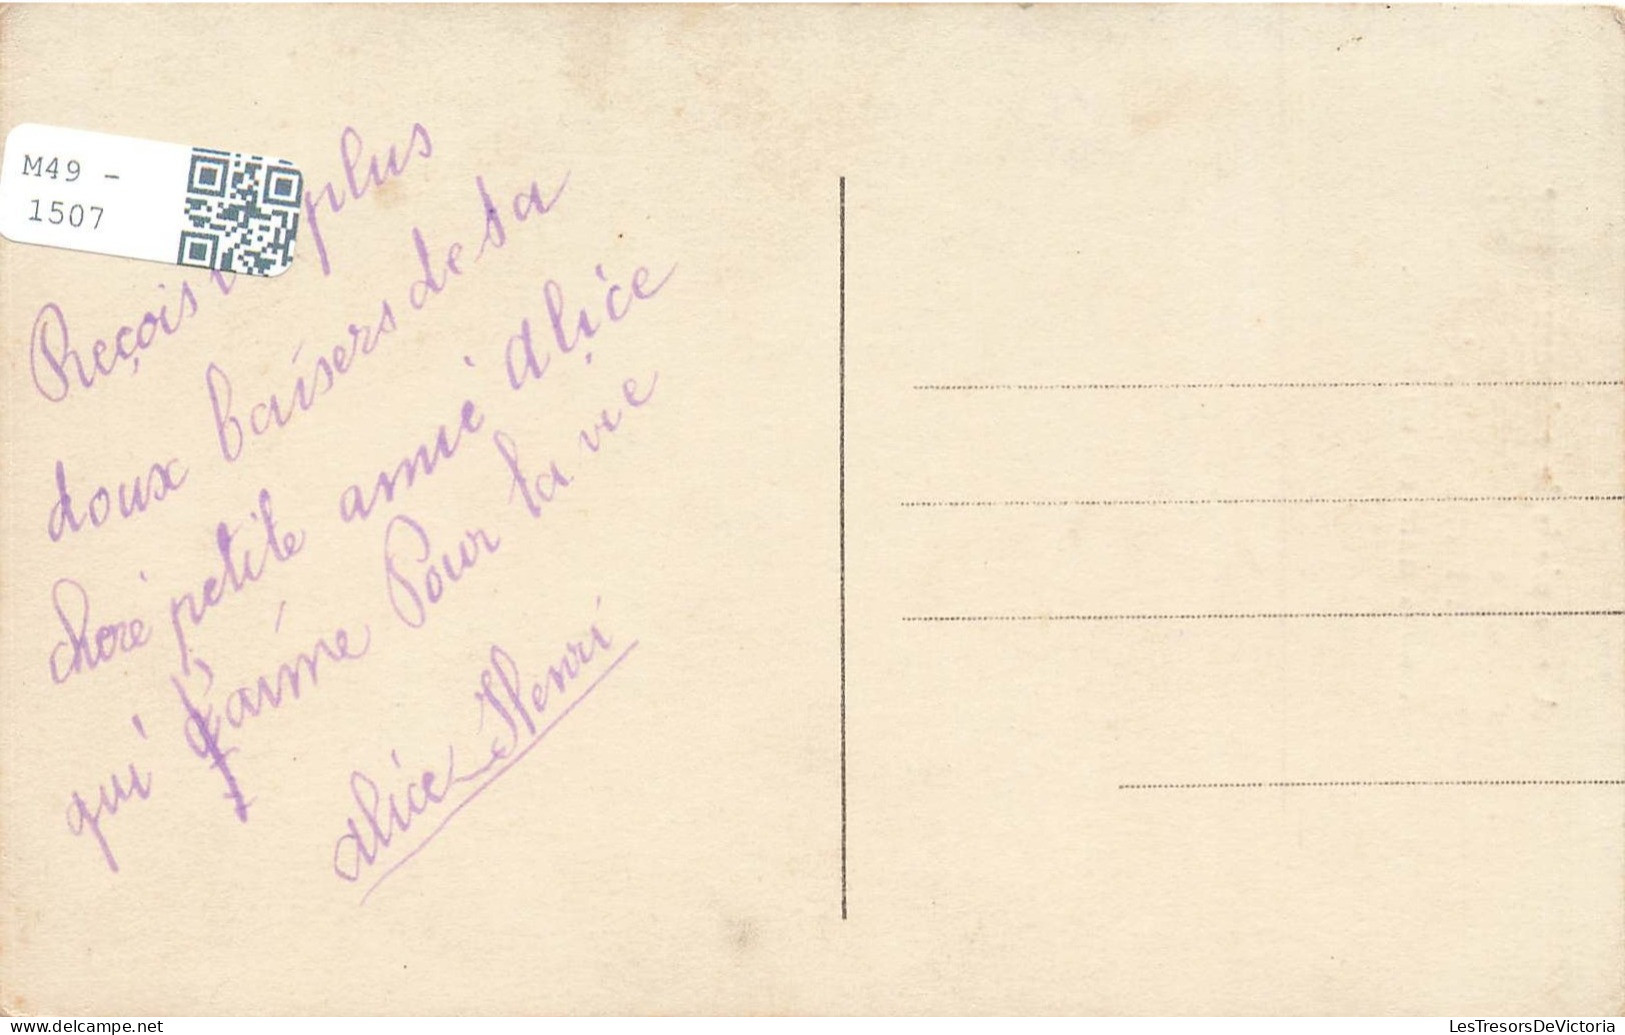 M49 -
1507
Reçois plus
doux baisers de ta
cheré petite amie alice
qui t'aime Pour la vie
alice Henri
LesTresorsDeVictoria
www.delcampe.net